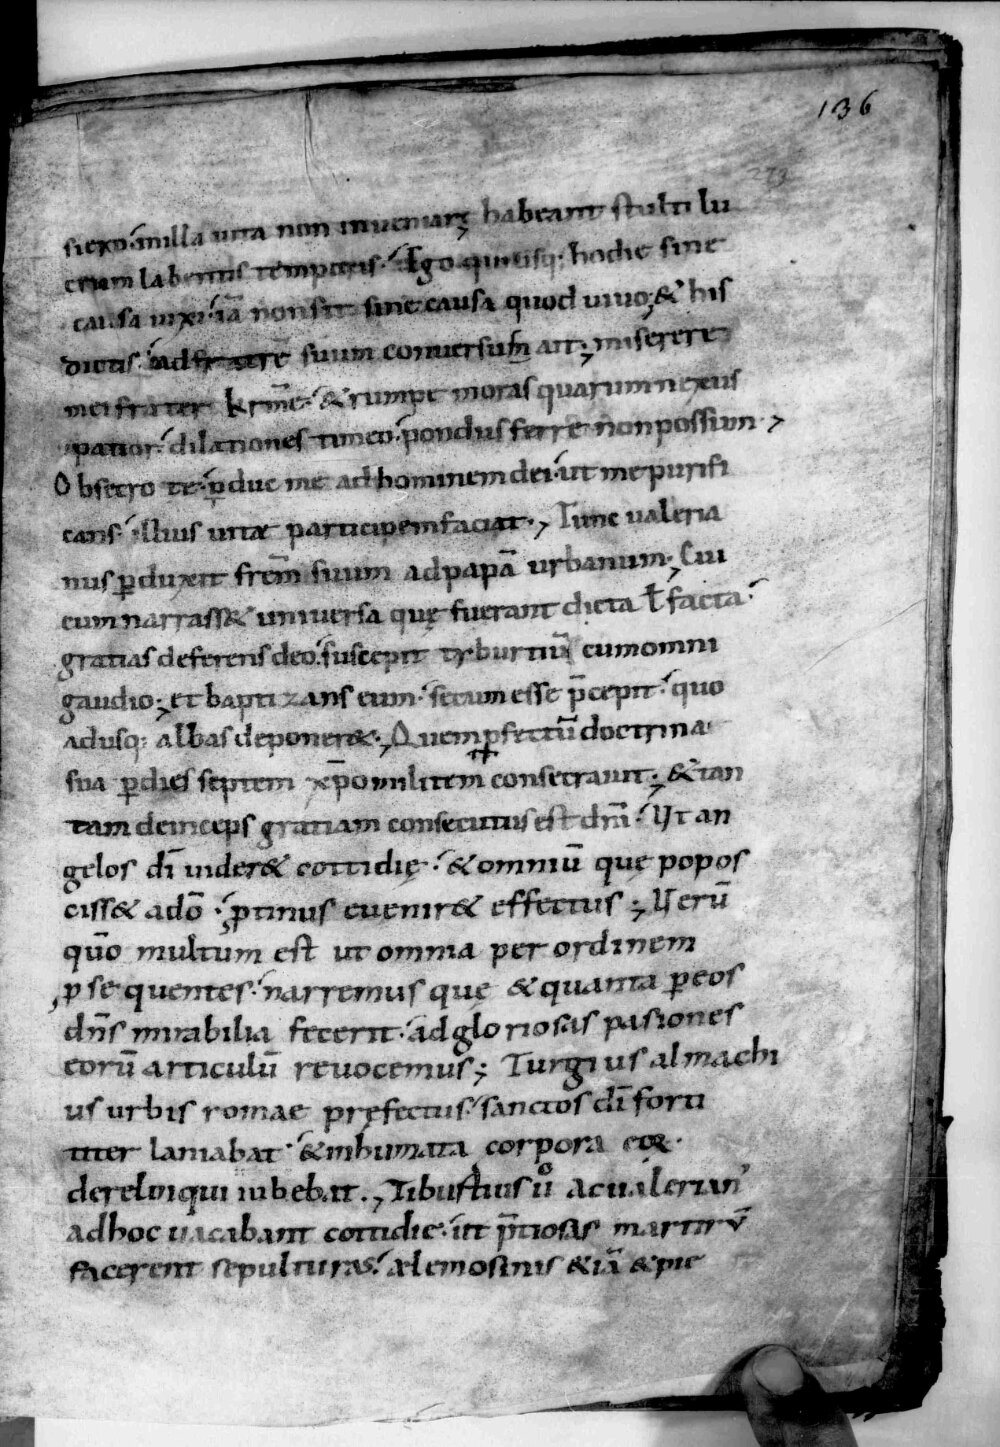 136
273
si ego illa uita non inueniar; habeant stulti lu
crum labentis temporis. Ego qui usq; hodie sine
causa uixi iā non sit sine causa quod uiuo; & his
dictis ad fratrē suum conuersum̄ ait; miserere
mei frater kr̄me. & rumpe moras quarum nexus
patior. dilationes timeo. pondus ferre non possum;
Obsecro te. p̱duc me ad hominem dei. ut me purifi
cans. illius uitæ participem faciat; Tunc ualeria
nus p̱duxit frēm suum ad papā urbanum; Cui
cum narrass& uniuersa quę fuerant dicta ł facta.
gratias deferens deo. suscepit tyburtiū cum omni
gaudio; et baptizans eum. secum esse p̄cepit. quo
adusq; albas deponer&; Quem p̱fectū doctrina
sua p̱ dies septem xp̄o militem consecrauit; & tan
tam deinceps gratiam consecutus est dn̄i. Ut an
gelos dī uider& cottidię. & omniū que popos
ciss& a dō. ꝓtinus euenir& effectus; Uerū
qūo multum est ut omnia per ordinem
ꝓsequentes. narremus quę & quanta p̱ eos
dn̄s mirabilia fecerit. ad gloriosas pasiones
eorū articulū reuocemus; Turgius almachi
us urbis romae pręfectus. sanctos dī forti
titer laniabat. & inhumata corpora eoꝝ.
derelinqui iubebat; Tiburtius uͦ ac ualerian'
ad hoc uacabant cottidie. ut p̄tiosas martirū
facerent sepulturas. ælemosinis & iā & pie